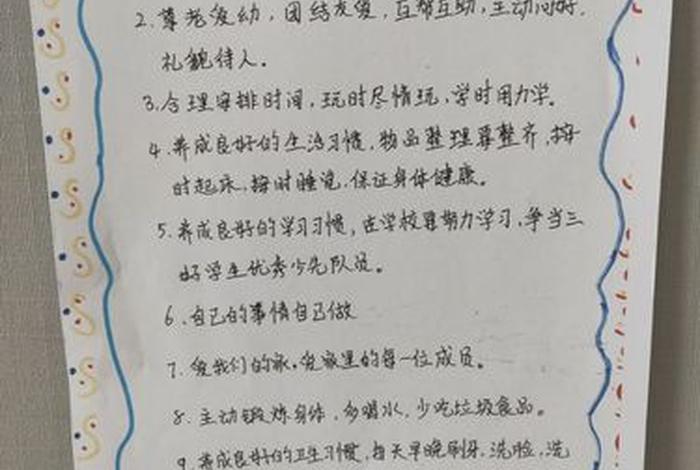 2.尊老爱幼，团结友爱，互帮互助，主动问好，
礼貌待人。
3.合理安排时间，玩时尽情玩，学时用力学。
4.养成良好的生活习惯，物品整理要整齐，按
时起床，按时睡觉，保证身体健康。
5.养成良好的学习习惯，在学校里努力学习，争当三
好学生优秀少先队员。
6.自己的事情自己做
7.爱我们的家，爱家里的每一位成员。
8.主动锻炼身体，多喝水，少吃垃圾食品。
9.养成良好的卫生习惯，每天早晚刷牙，洗脸，洗